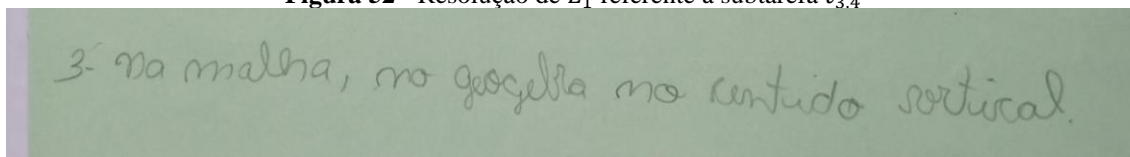 Figura 32 - Resolução de E₁ referente à subtarefa t₃.₄
3- na malha, no geogebra no centido vortical.